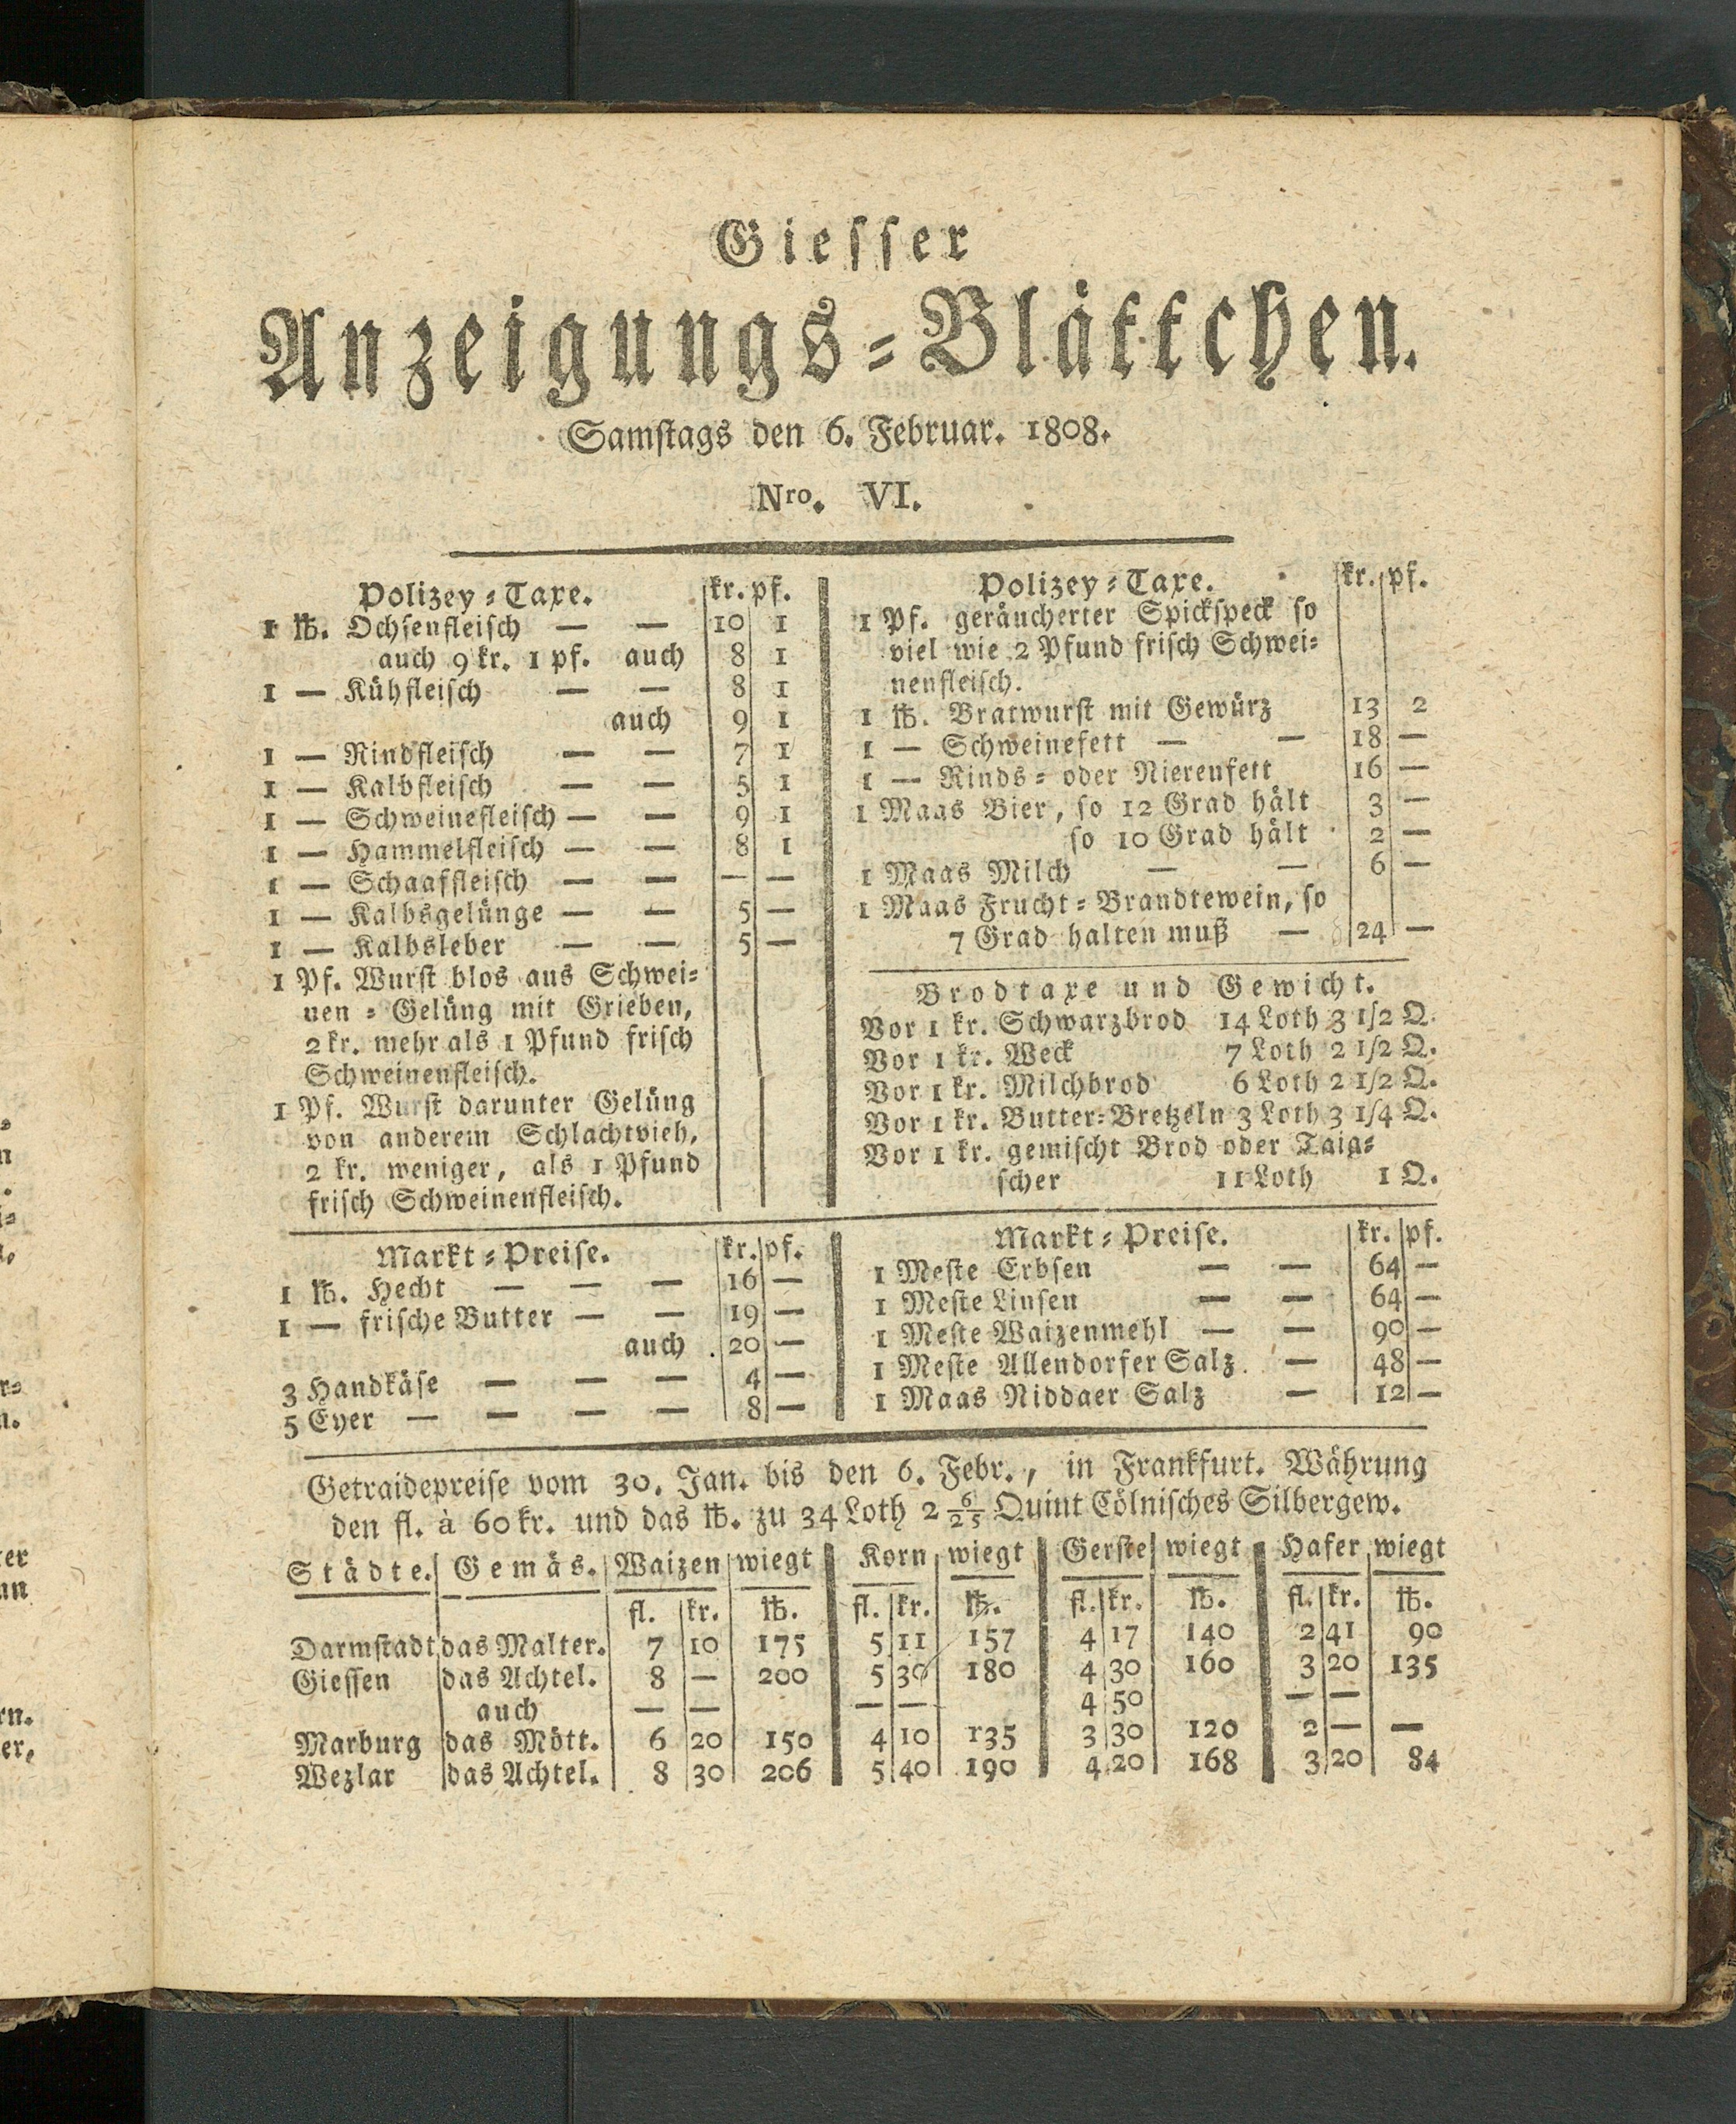 Giesser
Anzeigungs-Blättchen.
Samstags den 6. Februar. 1808.
Nro. VI.
Polizey-Taxe. kr. pf.
1 ℔. Ochsenfleisch — — 10 1
auch 9 kr. 1 pf. auch 8 1
1 — Kühfleisch — — 8 1
auch 9 1
1 — Rindfleisch — — 7 1
1 — Kalbfleisch — — 5 1
1 — Schweinefleisch — — 9 1
1 — Hammelfleisch — — 8 1
1 — Schaaffleisch — — — —
1 — Kalbsgelünge — — 5 —
1 — Kalbsleber — — 5 —
1 Pf. Wurst blos aus Schwei-
nen-Gelüng mit Grieben,
2 kr. mehr als 1 Pfund frisch
Schweinenfleisch.
1 Pf. Wurst darunter Gelüng
von anderem Schlachtvieh,
2 kr. weniger, als 1 Pfund
frisch Schweinenfleisch.
Polizey-Taxe. kr. pf.
1 Pf. geräucherter Spickspeck so
viel wie 2 Pfund frisch Schwei-
nenfleisch.
1 ℔. Bratwurst mit Gewürz 13 2
1 — Schweinefett — — 18 —
1 — Rinds- oder Nierenfett 16 —
1 Maas Bier, so 12 Grad hält 3 —
so 10 Grad hält 2 —
1 Maas Milch — — 6 —
1 Maas Frucht-Brandtewein, so
7 Grad halten muß — 24 —
Brodtaxe und Gewicht.
Vor 1 kr. Schwarzbrod 14 Loth 3 1/2 Q.
Vor 1 kr. Weck 7 Loth 2 1/2 Q.
Vor 1 kr. Milchbrod 6 Loth 2 1/2 Q.
Vor 1 kr. Butter-Bretzeln 3 Loth 3 1/4 Q.
Vor 1 kr. gemischt Brod oder Taig-
scher 11 Loth 1 Q.
Markt-Preise. kr. pf.
1 ℔. Hecht — — — 16 —
1 — frische Butter — — 19 —
auch 20 —
3 Handkäse — — — 4 —
5 Eyer — — — — 8 —
Markt-Preise. kr. pf.
1 Meste Erbsen — — 64 —
1 Meste Linsen — — 64 —
1 Meste Waizenmehl — — 90 —
1 Meste Allendorfer Salz — 48 —
1 Maas Niddaer Salz — 12 —
Getraidepreise vom 30. Jan. bis den 6. Febr., in Frankfurt. Währung
den fl. à 60 kr. und das ℔. zu 34 Loth 2 6/25 Quint Cölnisches Silbergew.
Städte. Gemäs. Waizen wiegt Korn wiegt Gerste wiegt Hafer wiegt
fl. kr. ℔. fl. kr. ℔. fl. kr. ℔. fl. kr. ℔.
Darmstadt das Malter. 7 10 175 5 11 157 4 17 140 2 41 90
Giessen das Achtel. 8 — 200 5 30 180 4 30 160 3 20 135
auch — — — — 4 50 — —
Marburg das Mött. 6 20 150 4 10 135 3 30 120 2 — —
Wezlar das Achtel. 8 30 206 5 40 190 4 20 168 3 20 84